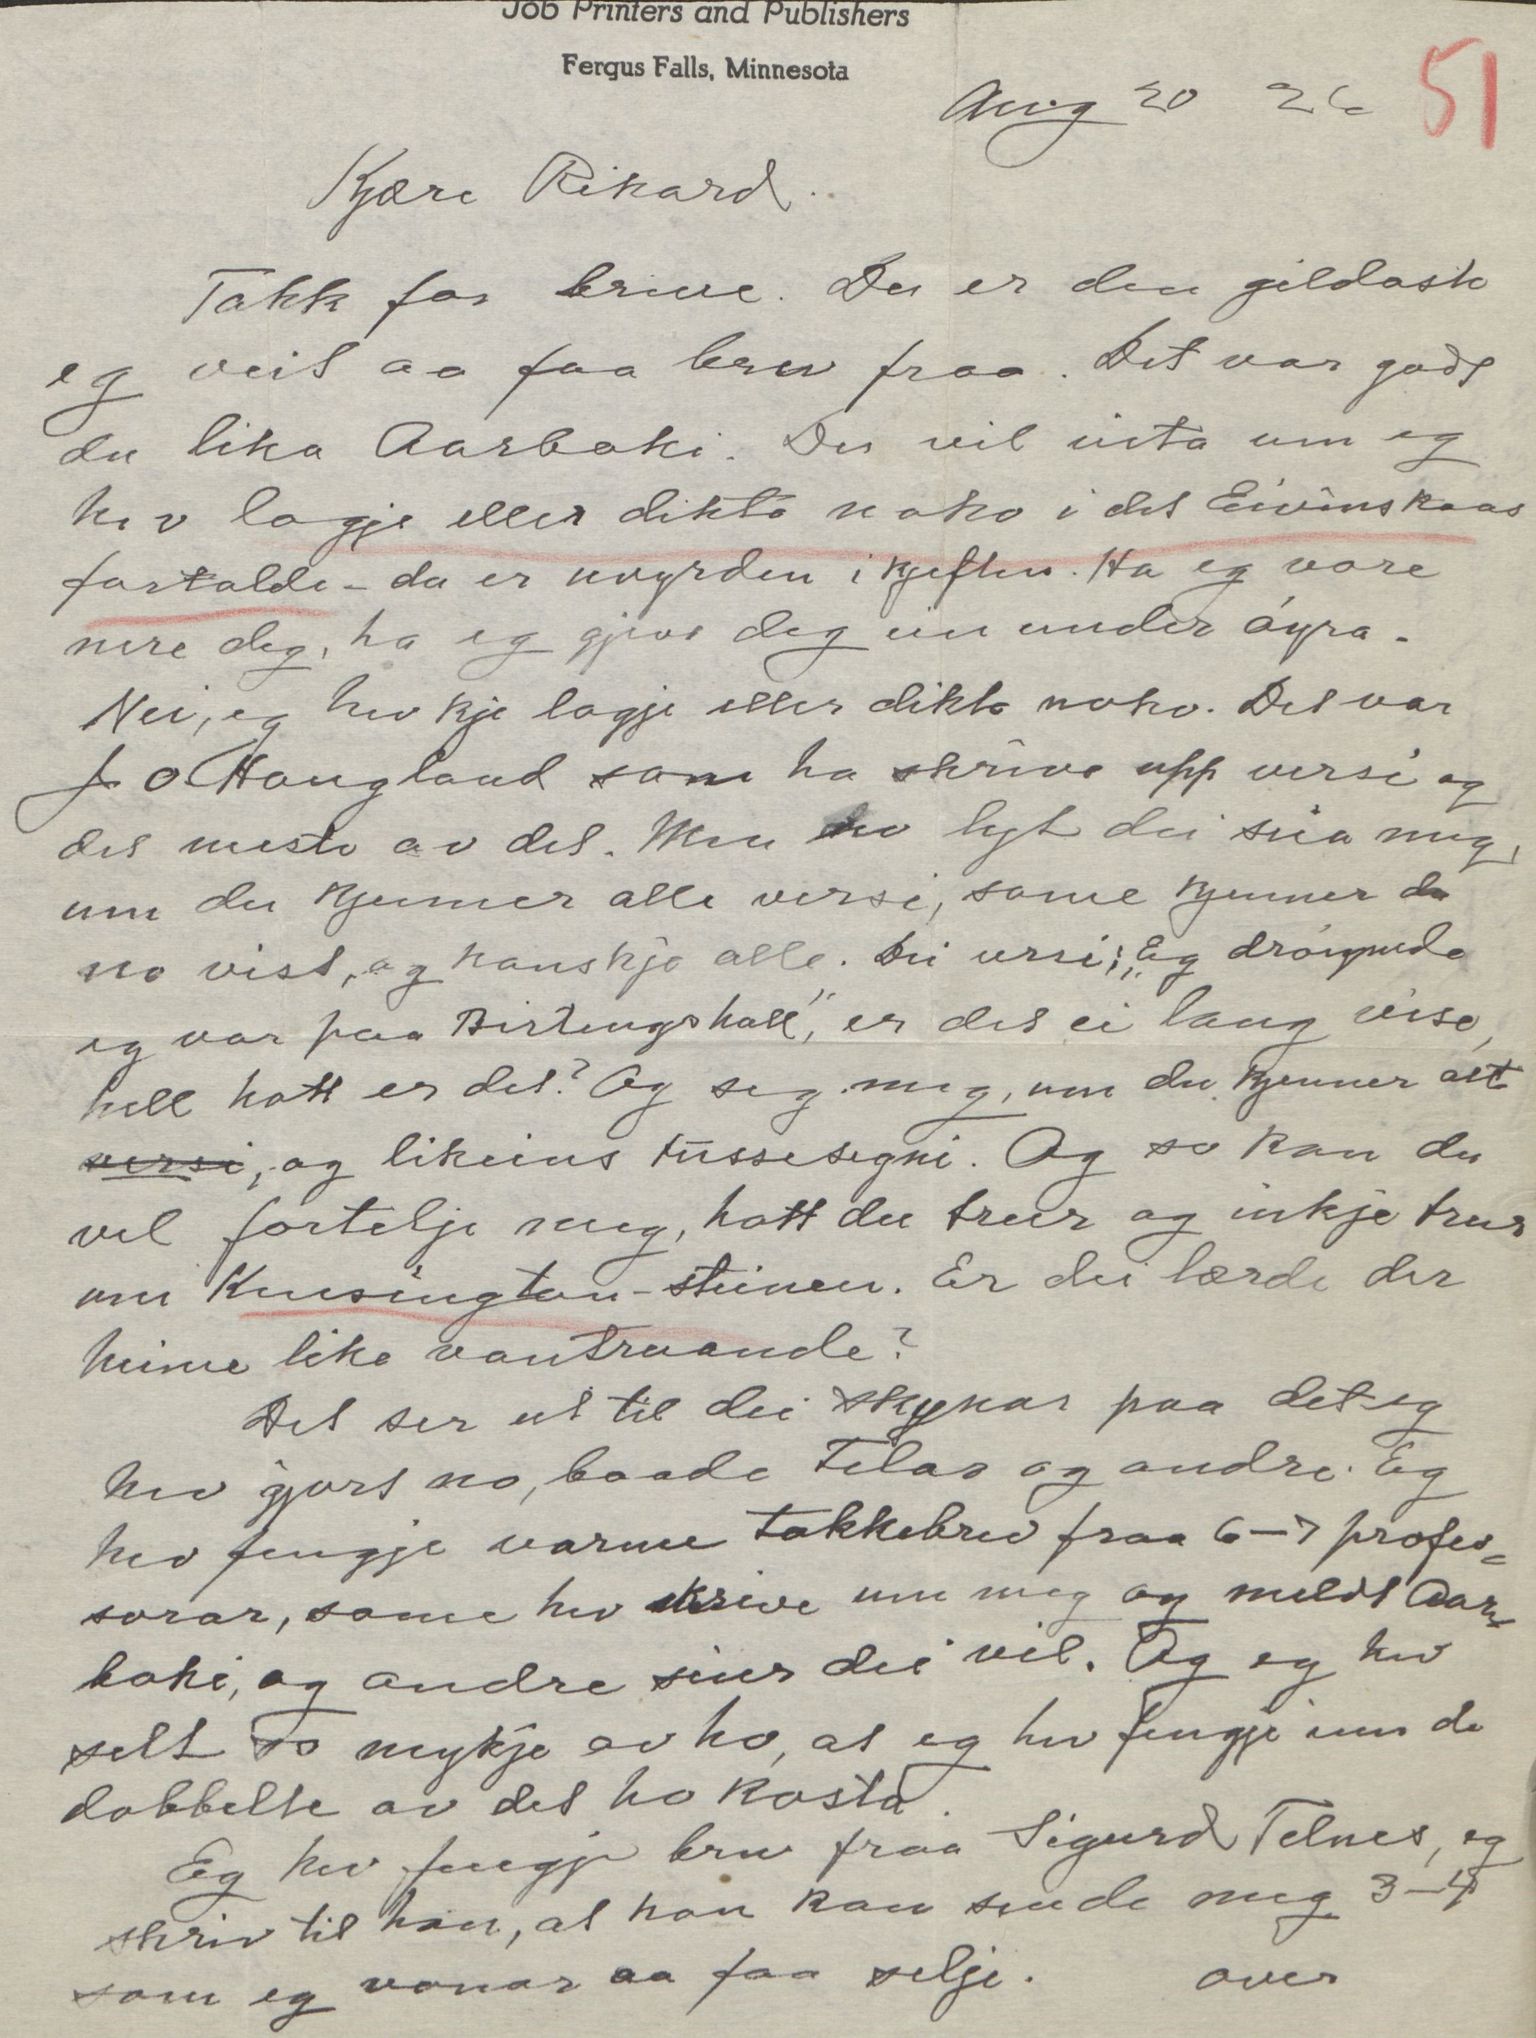 Job Printers and Publishers
Fergus Falls, Minnesota
Aug 20 26 51
Kjære Rikard.
Takk for breve. Du er den gildaste
eg veit aa faa brev fraa. Det var godt
du lika Aarboki. Du vil vita um eg
hev lagje eller dikta noko i det Eivinskaas
fortalde - du er uvyrden i kjeften. Ha eg vore
nere deg, ha eg gjeve deg ein under øyra.
Nei, eg hev kje lagje eller dikta noko. Det var
J O Haugland som ha skrive upp versi og
det meste av det. Men no lyt du seia meg,
um du kjenner alle versi, some kjenner du
no vist, og kanskje alle. Dei versi; "Eg drøymde
eg var paa Birtingshall", er det ei lang vise,
hell hott er det? Og seg meg, um du kjenner alt
versi, og likeins tussesegni. Og so kan du
vel fortelje meg, hott du trur og inkje trur
um Kensington-steinen. Er dei lærde der
heime like vantruande?
Det ser ut til dei skynar paa det eg
hev gjort no, baade Telar og andre. Eg
hev fengje varme takkebrev fraa 6-7 profes=
sorar, some hev skrive um meg og meldt Aar-
boki, og andre seier dei vil. Og eg hev
selt so mykje av ho, at eg hev fengje inn de
dobbelte av det ho kosta.
Eg hev fengje brev fraa Sigurd Telnes, eg
skriv til han, at han kan sende meg 3-4
som eg vonar aa faa selje. over